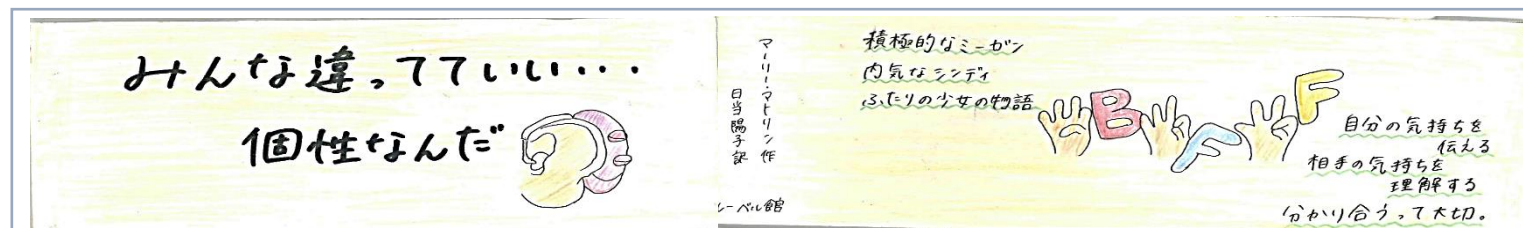 みんな違ってていい・・・
個性なんだ
マーリー・マトリン作
日当陽子訳
ーベル館
積極的なミーガン
内気なシンディ
ふたりの少女の物語
BFF
自分の気持ちを
伝える
相手の気持ちを
理解する
分かり合うって大切。